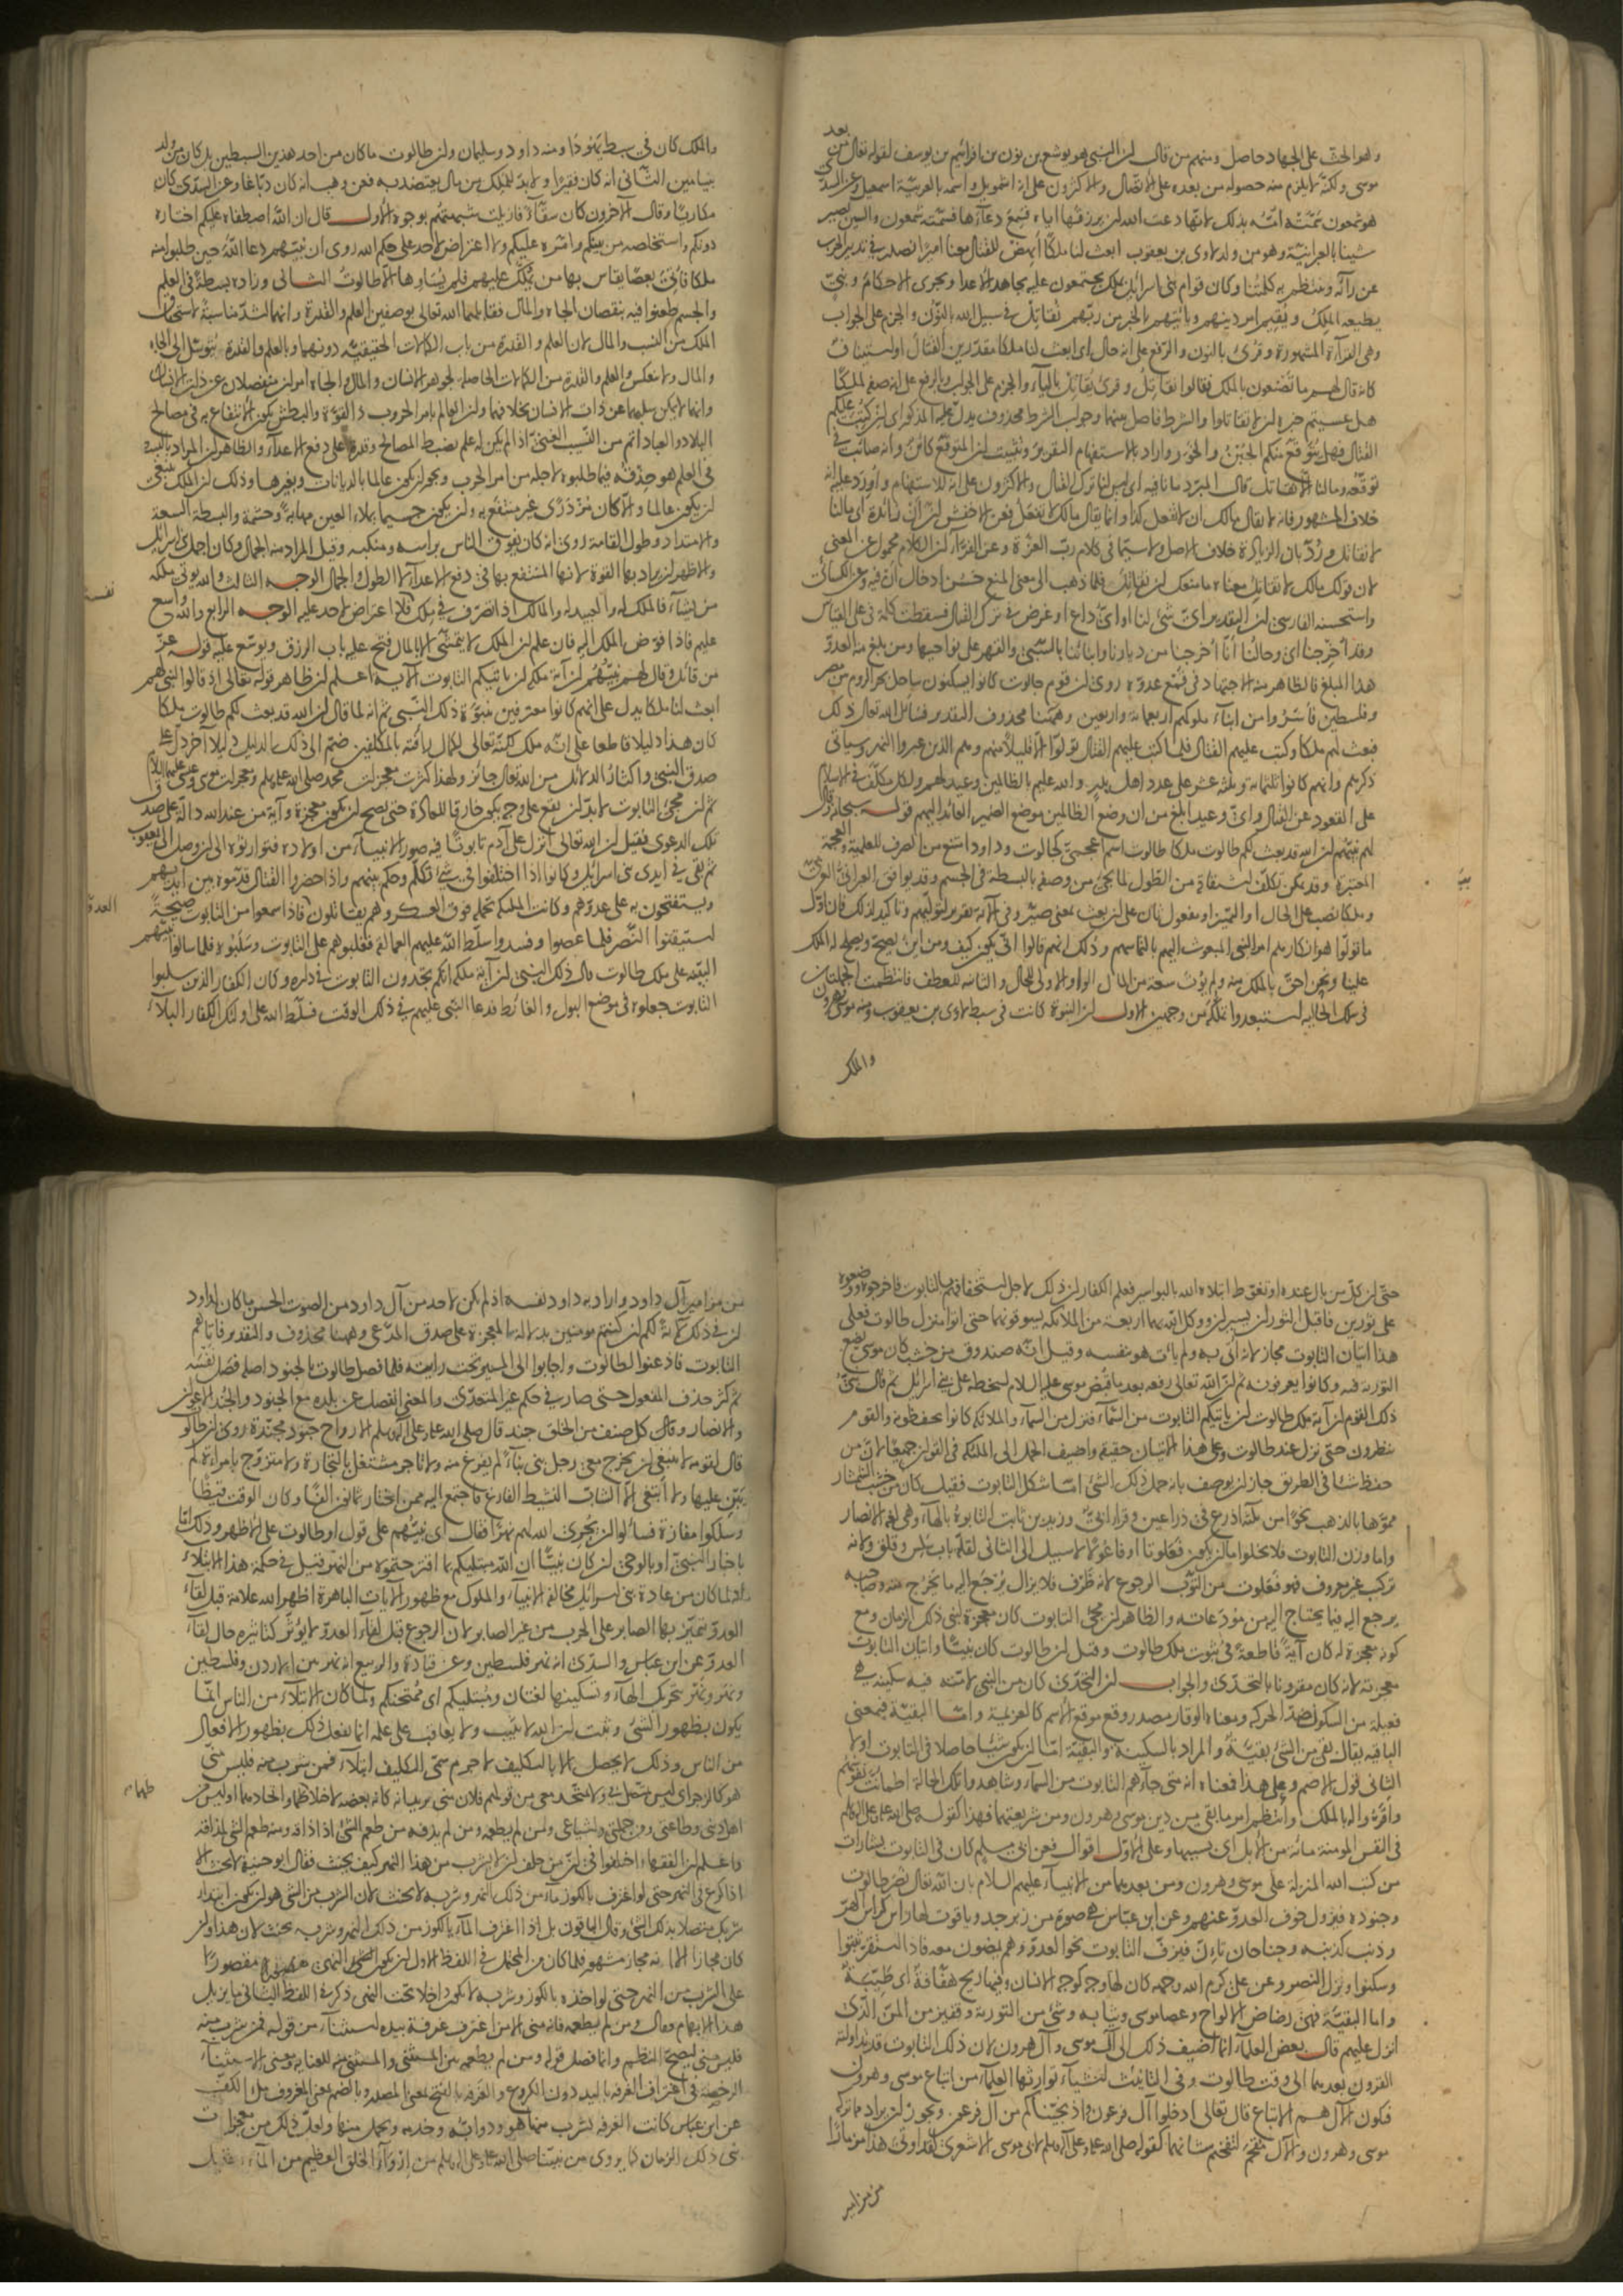 وهو الحث على الجهاد حاصل ومنهم من قال لن النبي هو يوشع بن نون بن افرائيم بن يوسف لقوله تعالى من بعد
موسى ولكنه لا يلزم منه حصوله من بعده على الاتصال والاكثرون على انه اشمويل واسمه بالعربية اسمعيل وعن السدي
هو شمعون سمته امه بذلك لانها دعت الله لن يرزقها اياه فسمع دعاءها فسمته شمعون والسين تصير
شينا بالعبرانية وهو من ولد لاوى بن يعقوب ابعث لنا ملكا انهض للقتال معنا اميرا نصدر في تدبير الحرب
عن رأيه وينتظم به كلمتنا وكان قوام بني اسرائيل بملك يجتمعون عليه يجاهد الاعداء ويجري الاحكام ونبي
يطيعه الملك ويقيم امر دينهم وياتيهم بالخبر من ربهم نقاتل في سبيل الله بالنون والجزم على الجواب
وهي القراءة المشهورة وقرئ بالنون والرفع على انه حال اي ابعث لنا ملكا مقدرين القتال او استيناف
كانه قال لهم ما تصنعون بالملك فقالوا نقاتل وقرئ يقاتل بالياء والجزم على الجواب وبالرفع على انه صفة لملكا
هل عسيتم خبره لن لا تقاتلوا والشرط فاصل بينهما وجواب الشرط محذوف يدل عليه المذكور اي لن كتب عليكم
القتال فهل يتوقع منكم الجبن والخور واراد بالاستفهام التقرير وتثبيت لن المتوقع كائن وانه صائب في
توقعه ومالنا الا نقاتل قال المبرد ما نافية اي ليس لنا ترك القتال والاكثرون على انه للاستفهام واورد عليه انه
خلاف المشهور فانه لا يقال مالك ان لا تفعل كذا وانما يقال مالك لا تفعل فعن الاخفش لن أن زائدة اي مالنا
لا نقاتل ورد بان الزيادة خلاف الاصل ولا سيما في كلام رب العزة وعن الفراء لن الكلام محمول على المعنى
لان قولك مالك لا تقاتل معناه ما منعك لن تقاتل فلما ذهب الى معنى المنع حسن ادخال أن فيه وعن الكسائي
واستحسنه الفارسي لن التقدير اي شئ لنا او اي داع او غرض في ترك القتال فسقطت كلمة في على القياس
وقد اخرجنا اي وحالنا أنا اخرجنا من ديارنا وابنائنا بالسبي والقهر على نواحيها ومن بلغ منه العدو
هذا المبلغ فالظاهر منه الاجتهاد في قمع عدوه روي لن قوم جالوت كانوا يسكنون ساحل بحر الروم من مصر
وفلسطين فاسروا من ابناء ملوكهم اربعمائة واربعين وههنا محذوف التقدير فسال الله تعالى ذلك
فبعث لهم ملكا وكتب عليهم القتال فلما كتب عليهم القتال تولوا الا قليلا منهم وهم الذين عبروا النهر وسياتي
ذكرهم وانهم كانوا ثلثمائة وثلثة عشر على عدد اهل بدر والله عليم بالظالمين وعيد لهم ولكل مكلف في الاسلام
على القعود عن القتال واي وعيد ابلغ من ان وضع الظالمين موضع الضمير العائد اليهم قوله سبحانه وقال
لهم نبيهم لن الله قد بعث لكم طالوت ملكا طالوت اسم اعجمي كجالوت وداود امتنع من الصرف للعلمية والعجمة
المعتبرة وقد يمكن تكلف اشتقاقه من الطول لما يجئ من وصفه بالبسطة في الجسم وقد يوافق العبراني العربي
وملكا نصب على الحال او التمييز او مفعول ثان على لن بعث بمعنى صير وفي الآية تقرير لتوليهم وتاكيد لذلك فان اول
ما تولوا هو انكارهم امر النبي المبعوث اليهم بالتماسهم وذلك انهم قالوا انى يكون كيف ومن اين يصح ويصلح له الملك
علينا ونحن احق بالملك منه ولم يؤت سعة من المال الواو الاولى للحال والثانية للعطف فانتظمت الجملتان
في سلك الحالية استبعدوا تملكه من وجهين الاول لن النبوة كانت في سبط لاوى بن يعقوب ومنه موسى وهرون
والملك
والملك كان في سبط يهوذا ومنه داود وسليمان ولن طالوت ما كان من احد هذين السبطين بل كان من ولد
بنيامين الثاني انه كان فقيرا ولا بد للملك من مال يعتضد به فعن وهب انه كان دباغا وعن السدي كان
مكاريا وقال الآخرون كان سقاء فازيلت شبهتهم بوجوه الاول قال ان الله اصطفاه عليكم اختاره
دونكم واستخلصه من بينكم وامره عليكم ولا اعتراض لاحد على حكم الله روي ان نبيهم دعا الله حين طلبوا منه
ملكا فاتي بعصا يقاس بها من يملك عليهم فلم يساوها الا طالوت الثاني وزاده بسطة في العلم
والجسم طعنوا فيه بنقصان الجاه والمال فقابلهما الله تعالى بوصفين العلم والقدرة وانهما اشد مناسبة لاستحقاق
الملك من النسب والمال لان العلم والقدرة من باب الكمالات الحقيقية دونهما وبالعلم والقدرة يتوسل الى الجاه
والمال ولا ينعكس والعلم والقدرة من الكمالات الحاصلة لجوهر الانسان والمال والجاه امران منفصلان عن ذات الانسان
وانهما لا يمكن سلبهما عن ذات الانسان بخلافهما ولن العالم بامر الحروب ذا القوة والبطش يكون الانتفاع به في مصالح
البلاد والعباد اتم من النسيب الغني اذا لم يكن له علم بضبط المصالح وقدرة على دفع الاعداء والظاهر لن المراد بالبسطة
في العلم هو حذقه فيما طلبوه لاجله من امر الحرب ويجوز لن يكون عالما بالديانات وبغيرها وذلك لن الملك ينبغي
لن يكون عالما والا كان مزدرى غير منتفع به ولن يكون جسيما يملاء العين مهابة وحشمة والبسطة السعة
والامتداد وطول القامة روي انه كان يفوق الناس براسه ومنكبيه وقيل المراد منه الجمال وكان اجمل بني اسرائيل
والاظهر لن يراد بها القوة لانها المنتفع بها في دفع الاعداء لا الطول والجمال الوجه الثالث والله يؤتي ملكه
من يشاء فالملك له والعبيد له والمالك اذا تصرف في ملكه فلا اعتراض لاحد عليه الوجه الرابع والله واسع
عليم فاذا فوض الملك اليه فان علم لن الملك لا يتمشى الا بالمال فتح عليه باب الرزق ويوسع عليه قوله عز
من قائل وقال لهم نبيهم لن آية ملكه لن ياتيكم التابوت الآية اعلم لن ظاهر قوله تعالى اذ قالوا لنبي لهم
ابعث لنا ملكا يدل على انهم كانوا معترفين بنبوة ذلك النبي ثم انه لما قال لن الله قد بعث لكم طالوت ملكا
كان هذا دليلا قاطعا على انه ملك لكنه تعالى لكمال رافته بالمكلفين ضم الى ذلك الدليل دليلا آخر دل على
صدق النبي واكثار الدلائل من الله تعالى جائز ولهذا كثرت معجزات محمد صلى الله عليه وسلم ومعجزات موسى وعيسى عليهما السلام
ثم لن مجئ التابوت لا بد لن يقع على وجه يكون خارقا للعادة حتى يصح لن يكون معجزة وآية من عند الله دالة على صدق
تلك الدعوى فقيل لن الله تعالى انزل على آدم تابوتا فيه صور الانبياء من اولاده فتوارثوه الى لن وصل الى يعقوب
ثم بقي في ايدي بني اسرائيل وكانوا اذا اختلفوا في شئ تكلم وحكم بينهم واذا حضروا القتال قدموه بين ايديهم
ويستفتحون به على عدوهم وكانت الملئكة تحمله فوق العسكر وهم يقاتلون فاذا سمعوا من التابوت صيحة
استيقنوا النصر فلما عصوا وفسدوا سلط الله عليهم العمالقة فغلبوهم على التابوت وسلبوه فلما سالوا نبيهم
البينة على ملك طالوت قال ذلك النبي لن آية ملكه انكم تجدون التابوت في داره وكان الكفار الذين سلبوا
التابوت جعلوه في موضع البول والغائط فدعا النبي عليهم في ذلك الوقت فسلط الله على اولئك الكفار البلاء
نفسه
العدو
حتى لن كل من بال عنده او تغوط ابتلاه الله بالبواسير فعلم الكفار لن ذلك لاجل استخفافهم بالتابوت فاخرجوه ووضعوه
على ثورين فاقبل الثوران يسيران ووكل الله بهما اربعة من الملائكة يسوقونهما حتى اتوا منزل طالوت فعلى
هذا اتيان التابوت مجاز لانه اتي به ولم يات هو بنفسه وقيل انه صندوق من خشب كان موسى يضع
التورية فيه وكانوا يعرفونه ثم لن الله تعالى رفعه بعد ما قبض موسى عليه السلام لسخطه على بني اسرائيل ثم قال نبي
ذلك القوم لن آية ملك طالوت لن ياتيكم التابوت من السماء فنزل من السماء والملائكة كانوا يحفظونه والقوم
ينظرون حتى نزل عند طالوت وعلى هذا الاتيان حقيقة واضيف الحمل الى الملئكة في القولين جميعا لان من
حفظ شيئا في الطريق جاز لن يوصف بانه حمل ذلك الشئ اما شكل التابوت فقيل كان من خشب الشمشار
مموها بالذهب نحوا من ثلثة اذرع في ذراعين وقرا ابي وزيد بن ثابت التابوه بالهاء وهي لغة الانصار
واما وزن التابوت فلا يخلوا ما لن يكون فعلوتا او فاعولا لا سبيل الى الثاني لقلة باب سلس وقلق ولانه
تركيب غير معروف فهو فعلوت من التوب الرجوع لانه ظرف فلا يزال يرجع اليه ما يخرج منه وصاحبه
يرجع اليه فيما يحتاج اليه من مودعاته والظاهر لن مجئ التابوت كان معجزة لنبي ذلك الزمان ومع
كونه معجزة له كان آية قاطعة في ثبوت ملك طالوت وقيل لن طالوت كان نبيا واتيان التابوت
معجزته لانه كان مقرونا بالتحدي والجواب لن التحدي كان من النبي لا منه فيه سكينة هي
فعيلة من السكون ضد الحركة ومعناه الوقار مصدر وقع موقع الاسم كالعزيمة واما البقية فبمعنى
الباقية يقال بقي من الشئ بقية والمراد بالسكينة والبقية اما لن يكون شيئا حاصلا في التابوت او لا
الثاني قول الاصم وعلى هذا فمعناه انه متى جاءهم التابوت من السماء وشاهدوا تلك الحالة اطمانت نفوسهم
واقروا له بالملك وانتظم امر ما بقي من دين موسى وهرون ومن شريعتهما فهذا كقوله صلى الله عليه وعلى آله وسلم
في النفس المؤمنة مائة من الابل اي بسببها وعلى الاول اقوال فعن ابي مسلم كان في التابوت بشارات
من كتب الله المنزلة على موسى وهرون ومن بعدهما من الانبياء عليهم السلام بان الله تعالى ينصر طالوت
وجنوده ويزول خوف العدو عنهم وعن ابن عباس هي صورة من زبرجد وياقوت لها راس كراس الهر
وذنب كذنبه وجناحان تاءن فيزف التابوت نحو العدو وهم يمضون معه فاذا استقر ثبتوا
وسكنوا ونزل النصر وعن علي كرم الله وجهه كان لها وجه كوجه الانسان وفيها ريح هفافة اي طيبة
واما البقية فهي رضاض الالواح وعصا موسى وثيابه وشئ من التورية وقفيز من المن الذي
انزل عليهم قال بعض العلماء انما اضيف ذلك الى آل موسى وآل هرون لان ذلك التابوت قد تداولته
القرون بعدهما الى وقت طالوت وفي التابوت اشياء توارثها العلماء من اتباع موسى وهرون
فيكون الآل هم الاتباع قال تعالى ادخلوا آل فرعون واذ نجيناكم من آل فرعون ويجوز لن يراد مما تركه
موسى وهرون والآل مقحم لتفخيم شانهما كقوله صلى الله عليه وعلى آله وسلم لابي موسى الاشعري لقد اوتي هذا مزمارا
من مزامير
من مزامير آل داود واراد به داود نفسه اذ لم يكن لاحد من آل داود من الصوت الحسن ما كان لداود
لن في ذلك لآية لكم لن كنتم مومنين بدلالة المعجزة على صدق المدعي وههنا محذوف والتقدير فاتاهم
التابوت فاذعنوا لطالوت واجابوا الى المسير تحت رايته فلما فصل طالوت بالجنود اصله فصل نفسه
ثم كثر حذف المفعول حتى صار في حكم غير المتعدي والمعنى انفصل عن بلده مع الجنود والجند الاعوان
والانصار وقال كل صنف من الخلق جند قال صلى الله عليه وعلى آله وسلم الارواح جنود مجندة روي لن طالوت
قال لقومه لا ينبغي لن يخرج معي رجل بنى بناء لم يفرغ منه ولا تاجر مشتغل بالتجارة ولا متزوج بامراة لم
يبن عليها ولا ابتغي الا الشاب النشيط الفارغ فاجتمع اليه ممن اختار ثمانون الفا وكان الوقت قيظا
وسلكوا مفازة فسالوا لن يجري الله لهم نهرا فقال اي نبيهم على قول او طالوت على الاظهر وذلك اما
باخبار النبي او بالوحي لن كان نبيا ان الله مبتليكم بما اقترحتموه من النهر قيل في حكمة هذا الابتلاء
انه لما كان من عادة بني اسرائيل مخالفة الانبياء والملوك مع ظهور الآيات الباهرة اظهر الله علامة قبل لقاء
العدو يتميز بها الصابر على الحرب من غير الصابر لان الرجوع قبل لقاء العدو لا يؤثر كتاثيره حال لقاء
العدو عن ابن عباس والسدي انه نهر فلسطين وعن قتادة والربيع انه نهر بين الاردن وفلسطين
ونهر ونهر بتحريك الهاء وتسكينها لغتان ومبتليكم اي ممتحنكم ولما كان الابتلاء من الناس انما
يكون بظهور الشئ وثبت لن الله لا يثيب ولا يعاقب على علمه انما يفعل ذلك بظهور الافعال
من الناس وذلك لا يحصل الا بالتكليف لا جرم سمي التكليف ابتلاء فمن شرب منه فليس مني
هو كالزجر اي ليس متصل بي ولا متحد معي من قولهم فلان مني يريد انه كانه بعضه لاختلاطهما واتحادهما او ليس من
اهل ديني وطاعتي ومن جملتي واشياعي ومن لم يطعمه ومن لم يذقه من طعم الشئ اذا ذاقه ومنه طعم الشئ لمذاقه
واعلم لن الفقهاء اختلفوا في لن من حلف لن لا يشرب من هذا النهر كيف يحنث فقال ابو حنيفة لا يحنث الا
اذا كرع في النهر حتى لو اغترف بالكوز ماء من ذلك النهر وشربه لا يحنث لان الشرب من الشئ هو لن يكون ابتداء
شربك متصلا بذلك الشئ وقال الباقون بل اذا اغترف الماء بالكوز من ذلك النهر وشربه يحنث لان هذا ولن
كان مجازا الا انه مجاز مشهور فلما كان من المحتمل في اللفظ الاول لن يكون النهي مقصورا
على الشرب من النهر حتى لو اخذه بالكوز وشربه لا يكون داخلا تحت النهي ذكر في اللفظ الثاني ما يزيل
هذا الابهام فقال ومن لم يطعمه فانه مني الا من اغترف غرفة بيده استثناء من قوله فمن شرب منه
فليس مني ليصح النظم وانما فصل قوله ومن لم يطعمه بين المستثنى والمستثنى منه للعناية ومعنى الاستثناء
الرخصة في اغتراف الغرفة باليد دون الكروع والغرفة بالفتح بمعنى المصدر وبالضم بمعنى المغروف ملء الكف
عن ابن عباس كانت الغرفة يشرب منها هو ودوابه وخدمه ويحمل منها ولعل ذلك من معجزات
نبي ذلك الزمان كما يروى من نبينا صلى الله عليه وعلى آله وسلم من ارواء الخلق العظيم من الماء القليل